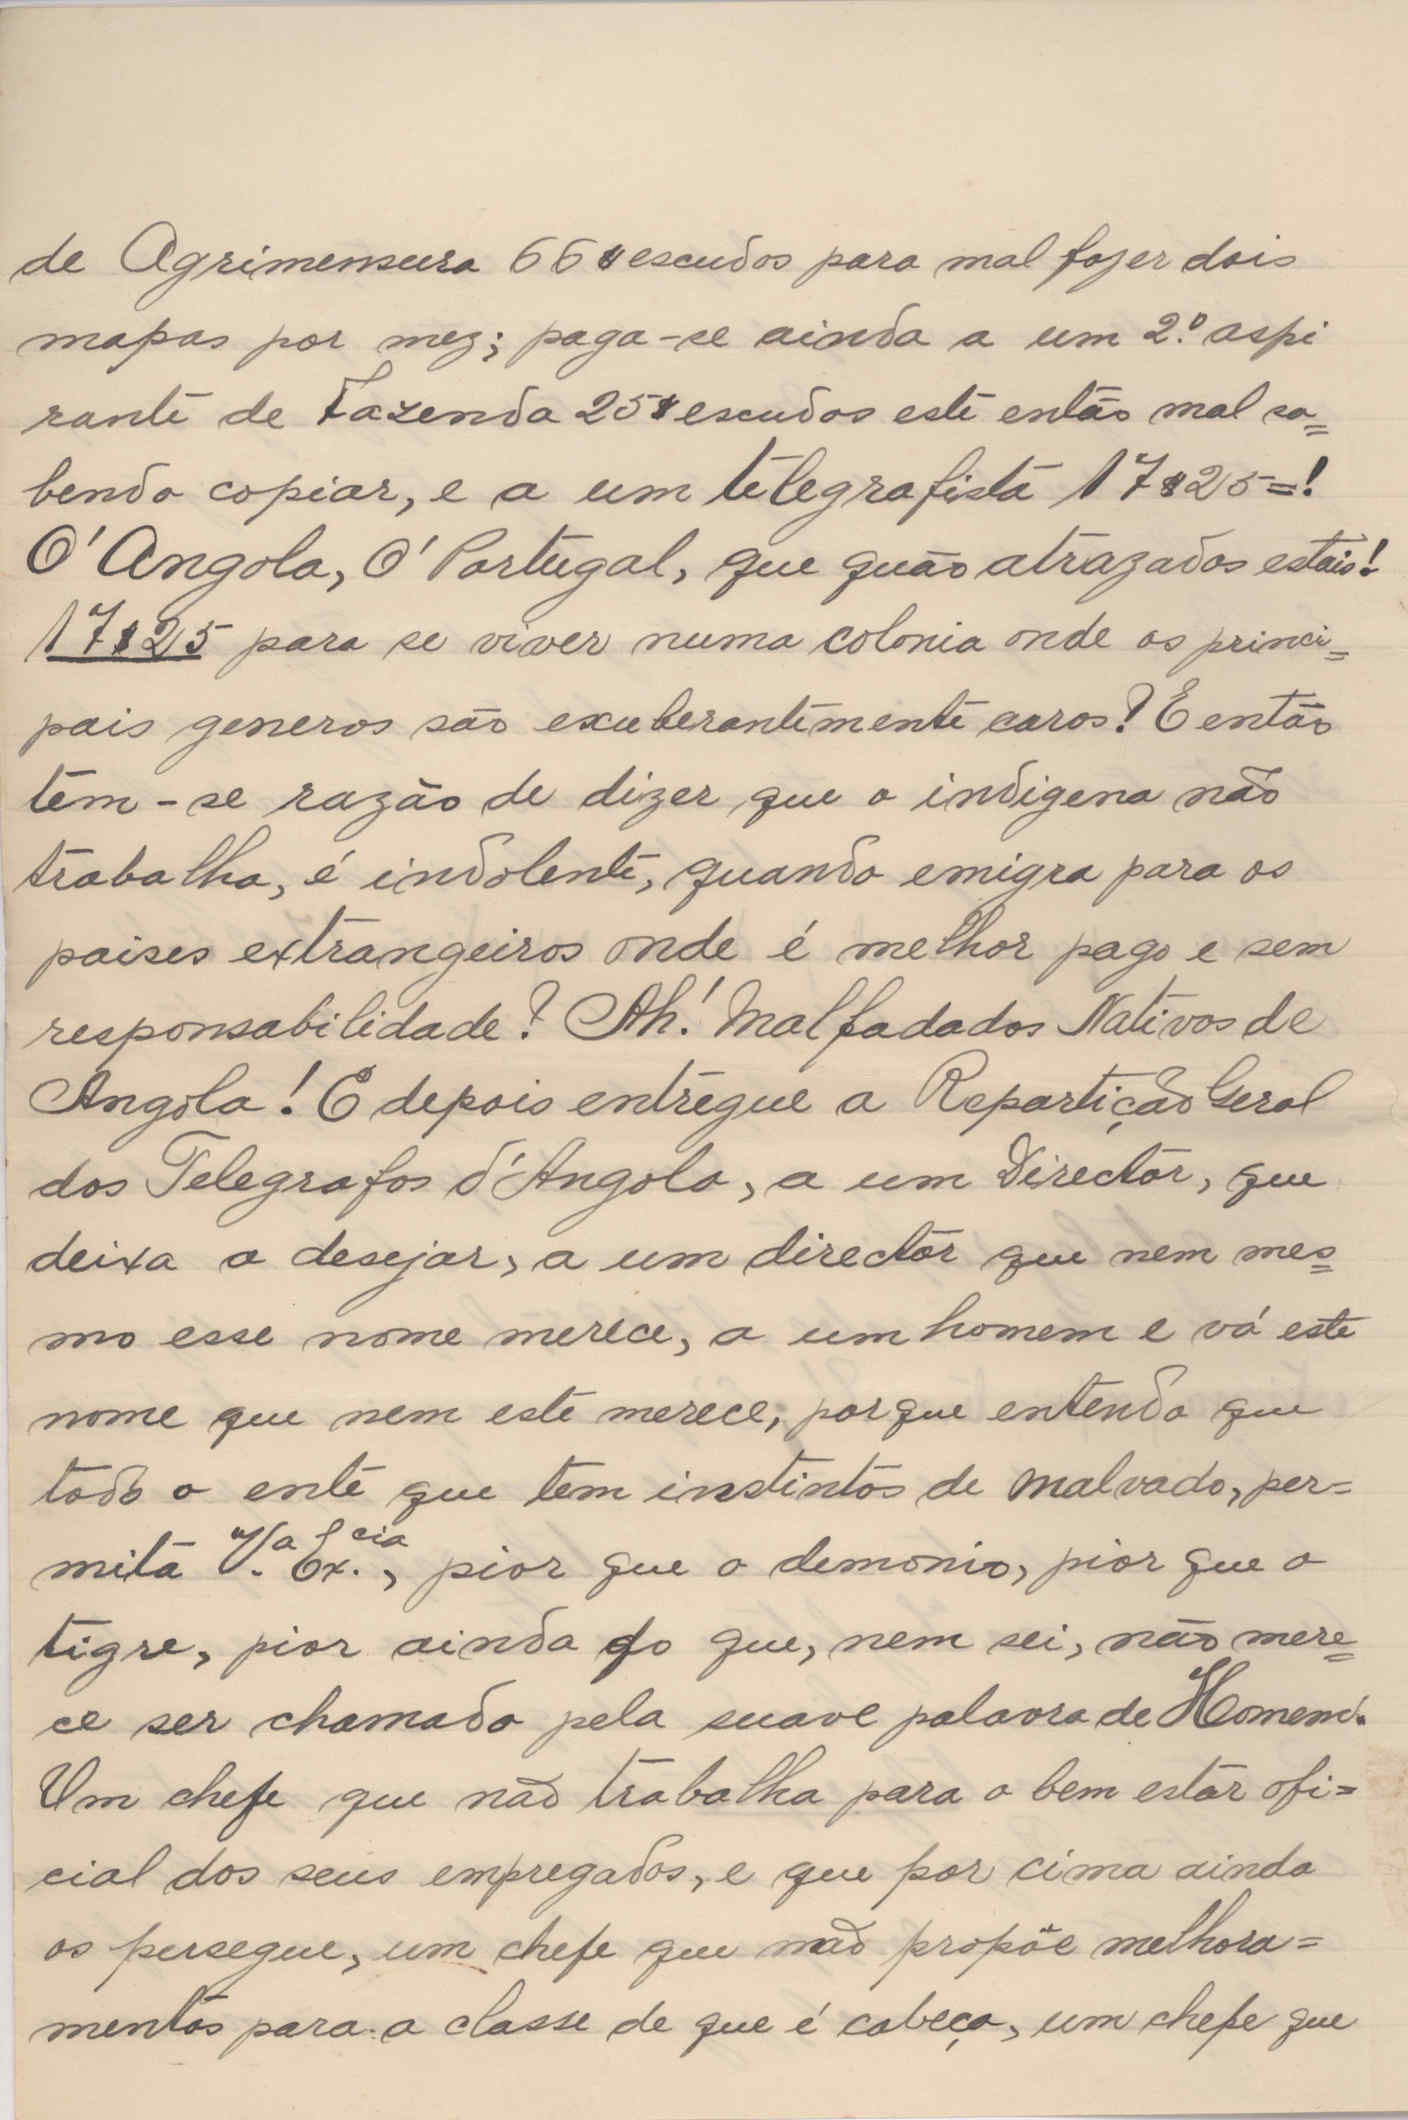 de Agrimensura 66$escudos para mal fazer dois
mapas por mez; paga-se ainda a um 2.º aspi
rante de Fazenda 25$escudos este então mal sa=
bendo copiar, e a um telegrafista 17$25=!
O' Angola, O' Portugal, que quão atrazados estais!
17$25 para se viver numa colonia onde os princi=
pais generos são exuberantemente caros? E então
tem-se razão de dizer que o indigena não
trabalha, é indolente, quando emigra para os
paises extrangeiros onde é melhor pago e sem
responsabilidade? Ah! Malfadados Nativos de
Angola! E depois entregue a Repartição Geral
dos Telegrafos d'Angola, a um Director, que
deixa a desejar, a um director que nem mes=
mo esse nome merece, a um homem e vá este
nome que nem este merece, porque entendo que
todo o ente que tem instintos de malvado, per=
mita V.ª Ex.cia, pior que o demonio, pior que o
tigre, pior ainda do que, nem sei, não mere=
ce ser chamado pela suave palavra de Homem.
Um chefe que não trabalha para o bem estar ofi=
cial dos seus empregados, e que por cima ainda
os persegue, um chefe que não propõe melhora=
mentos para a classe de que é cabeça, um chefe que